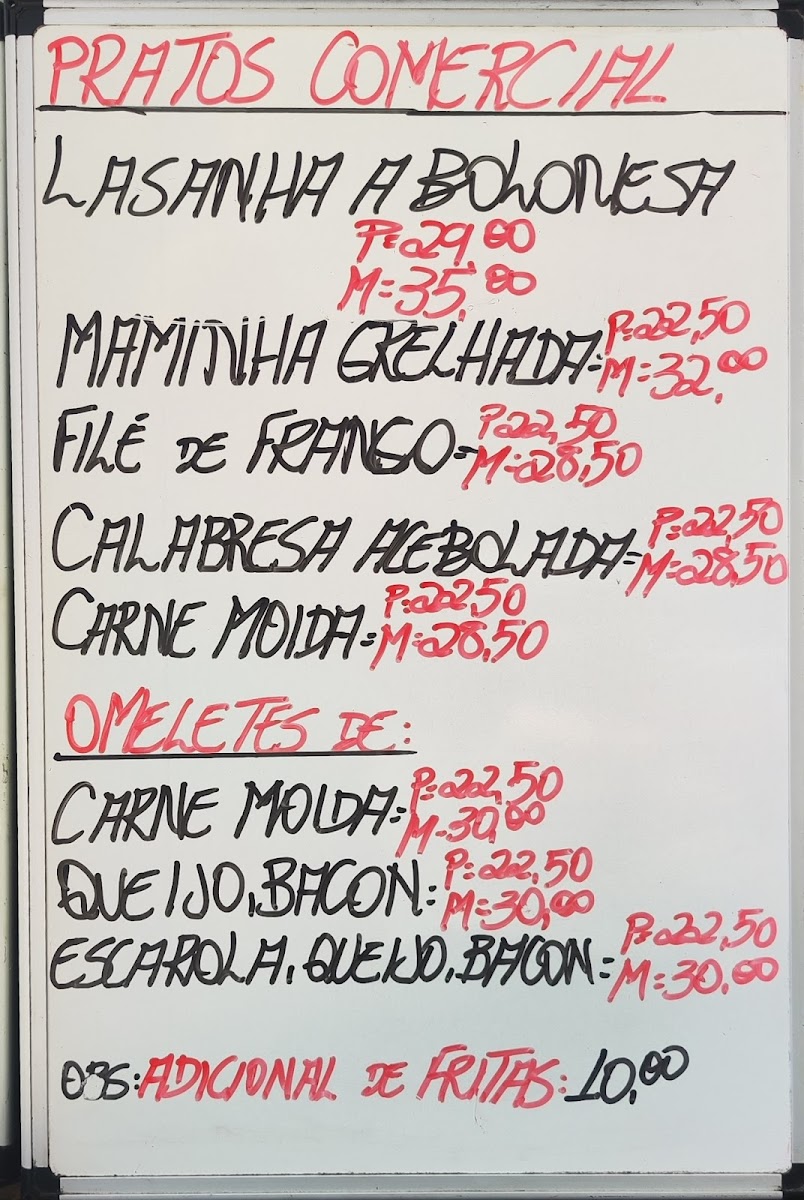 PRATOS COMERCIAL
LASANHA A BOLONESA
P=29,00
M=35,00
MAMINHA GRELHADA= P=22,50
M=32,00
FILÉ DE FRANGO= P=22,50
M=28,50
CALABRESA ACEBOLADA= P=22,50
M=28,50
CARNE MOIDA= P=22,50
M=28,50
OMELETES DE:
CARNE MOIDA= P=22,50
M=30,00
QUEIJO, BACON= P=22,50
M=30,00
ESCAROLA, QUEIJO, BACON= P=22,50
M=30,00
OBS: ADICIONAL DE FRITAS: 10,00